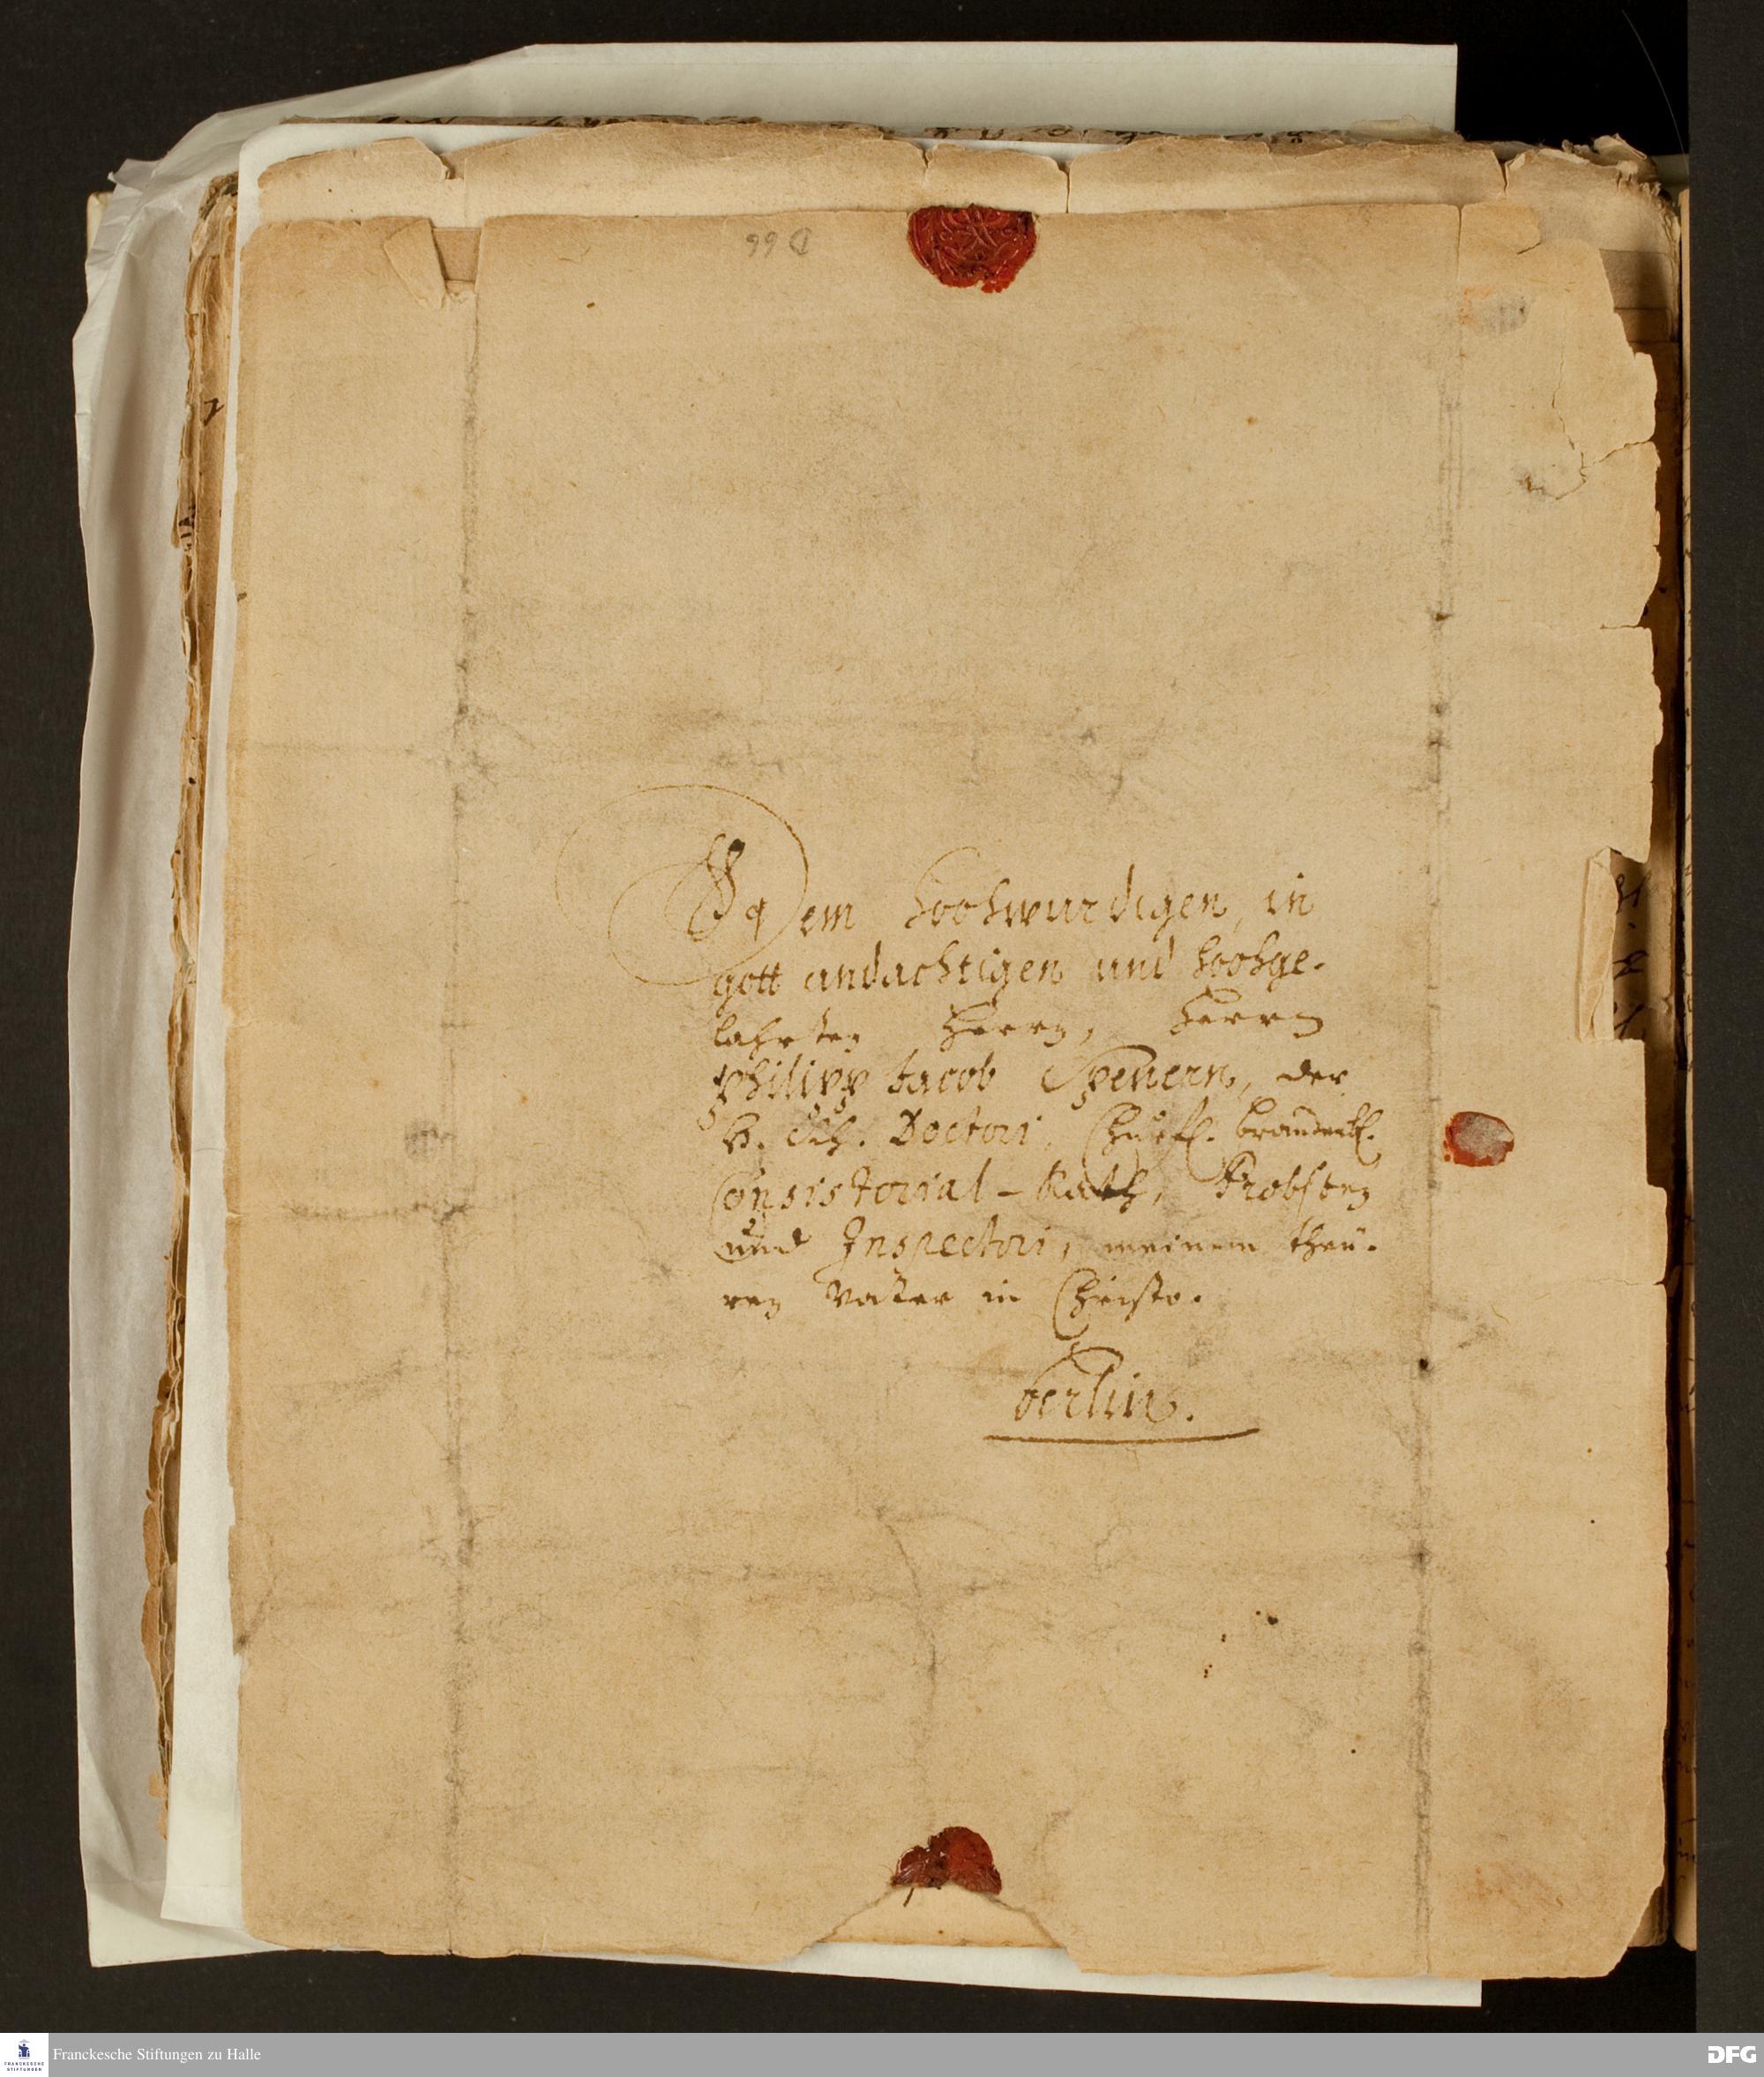 D 66
Dem Hochwürdigen, in
gott andächtigen und hochge-
lahrten Herrn, Herrn
Philipp Jacob Spenern, der
H. Sch. Doctori, Churfl. Brandenb.
Consistorial-Rath, Probsten
und Inspectori, meinem theü-
ren Vater in Christo.
Berlin.
Franckesche Stiftungen zu Halle
FRANCKESCHE
STIFTUNGEN
DFG